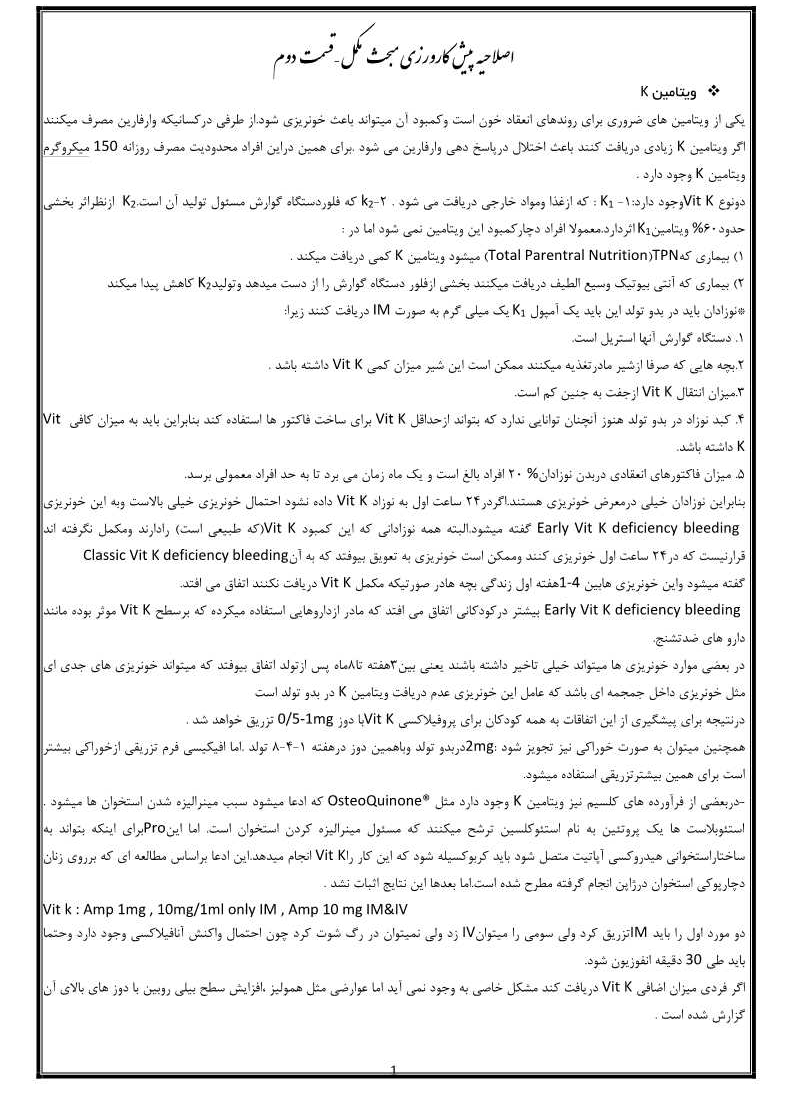 اصلاحیه پیش کارورزی مبحث مکمل-قسمت دوم
❖ ویتامین K
یکی از ویتامین های ضروری برای روندهای انعقاد خون است وکمبود آن میتواند باعث خونریزی شود.از طرفی درکسانیکه وارفارین مصرف میکنند
اگر ویتامین K زیادی دریافت کنند باعث اختلال درپاسخ دهی وارفارین می شود .برای همین دراین افراد محدودیت مصرف روزانه 150 میکروگرم
ویتامین K وجود دارد .
دونوع Vit Kوجود دارد:۱- K1 : که ازغذا ومواد خارجی دریافت می شود . ۲-k2 که فلوردستگاه گوارش مسئول تولید آن است.K2 ازنظراثر بخشی
حدود۶۰% ویتامینK1اثردارد.معمولا افراد دچارکمبود این ویتامین نمی شود اما در :
۱) بیماری که TPN(Total Parentral Nutrition) میشود ویتامین K کمی دریافت میکند .
۲) بیماری که آنتی بیوتیک وسیع الطیف دریافت میکنند بخشی ازفلور دستگاه گوارش را از دست میدهد وتولیدK2 کاهش پیدا میکند
*نوزادان باید در بدو تولد این باید یک آمپول K1 یک میلی گرم به صورت IM دریافت کنند زیرا:
۱. دستگاه گوارش آنها استریل است.
۲.بچه هایی که صرفا ازشیر مادرتغذیه میکنند ممکن است این شیر میزان کمی Vit K داشته باشد .
۳.میزان انتقال Vit K ازجفت به جنین کم است.
۴. کبد نوزاد در بدو تولد هنوز آنچنان توانایی ندارد که بتواند ازحداقل Vit K برای ساخت فاکتور ها استفاده کند بنابراین باید به میزان کافی Vit
K داشته باشد.
۵. میزان فاکتورهای انعقادی دربدن نوزادان% ۲۰ افراد بالغ است و یک ماه زمان می برد تا به حد افراد معمولی برسد.
بنابراین نوزادان خیلی درمعرض خونریزی هستند.اگردر۲۴ ساعت اول به نوزاد Vit K داده نشود احتمال خونریزی خیلی بالاست وبه این خونریزی
Early Vit K deficiency bleeding گفته میشود.البته همه نوزادانی که این کمبود Vit K(که طبیعی است) رادارند ومکمل نگرفته اند
قرارنیست که در۲۴ ساعت اول خونریزی کنند وممکن است خونریزی به تعویق بیوفتد که به آنClassic Vit K deficiency bleeding
گفته میشود واین خونریزی هابین 4-1هفته اول زندگی بچه هادر صورتیکه مکمل Vit K دریافت نکنند اتفاق می افتد.
Early Vit K deficiency bleeding بیشتر درکودکانی اتفاق می افتد که مادر ازداروهایی استفاده میکرده که برسطح Vit K موثر بوده مانند
دارو های ضدتشنج.
در بعضی موارد خونریزی ها میتواند خیلی تاخیر داشته باشند یعنی بین۳هفته تا۸ماه پس ازتولد اتفاق بیوفتد که میتواند خونریزی های جدی ای
مثل خونریزی داخل جمجمه ای باشد که عامل این خونریزی عدم دریافت ویتامین K در بدو تولد است
درنتیجه برای پیشگیری از این اتفاقات به همه کودکان برای پروفیلاکسی Vit Kبا دوز 0/5-1mg تزریق خواهد شد .
همچنین میتوان به صورت خوراکی نیز تجویز شود :2mgدربدو تولد وباهمین دوز درهفته ۱-۴-۸ تولد .اما افیکیسی فرم تزریقی ازخوراکی بیشتر
است برای همین بیشترتزریقی استفاده میشود.
-دربعضی از فرآورده های کلسیم نیز ویتامین K وجود دارد مثل OsteoQuinone® که ادعا میشود سبب مینرالیزه شدن استخوان ها میشود .
استئوبلاست ها یک پروتئین به نام استئوکلسین ترشح میکنند که مسئول مینرالیزه کردن استخوان است. اما اینProبرای اینکه بتواند به
ساختاراستخوانی هیدروکسی آپاتیت متصل شود باید کربوکسیله شود که این کار راVit K انجام میدهد.این ادعا براساس مطالعه ای که برروی زنان
دچارپوکی استخوان درژاپن انجام گرفته مطرح شده است.اما بعدها این نتایج اثبات نشد .
Vit k : Amp 1mg , 10mg/1ml only IM , Amp 10 mg IM&IV
دو مورد اول را باید IMتزریق کرد ولی سومی را میتوانIV زد ولی نمیتوان در رگ شوت کرد چون احتمال واکنش آنافیلاکسی وجود دارد وحتما
باید طی 30 دقیقه انفوزیون شود.
اگر فردی میزان اضافی Vit K دریافت کند مشکل خاصی به وجود نمی آید اما عوارضی مثل همولیز ،افزایش سطح بیلی روبین با دوز های بالای آن
گزارش شده است .
1